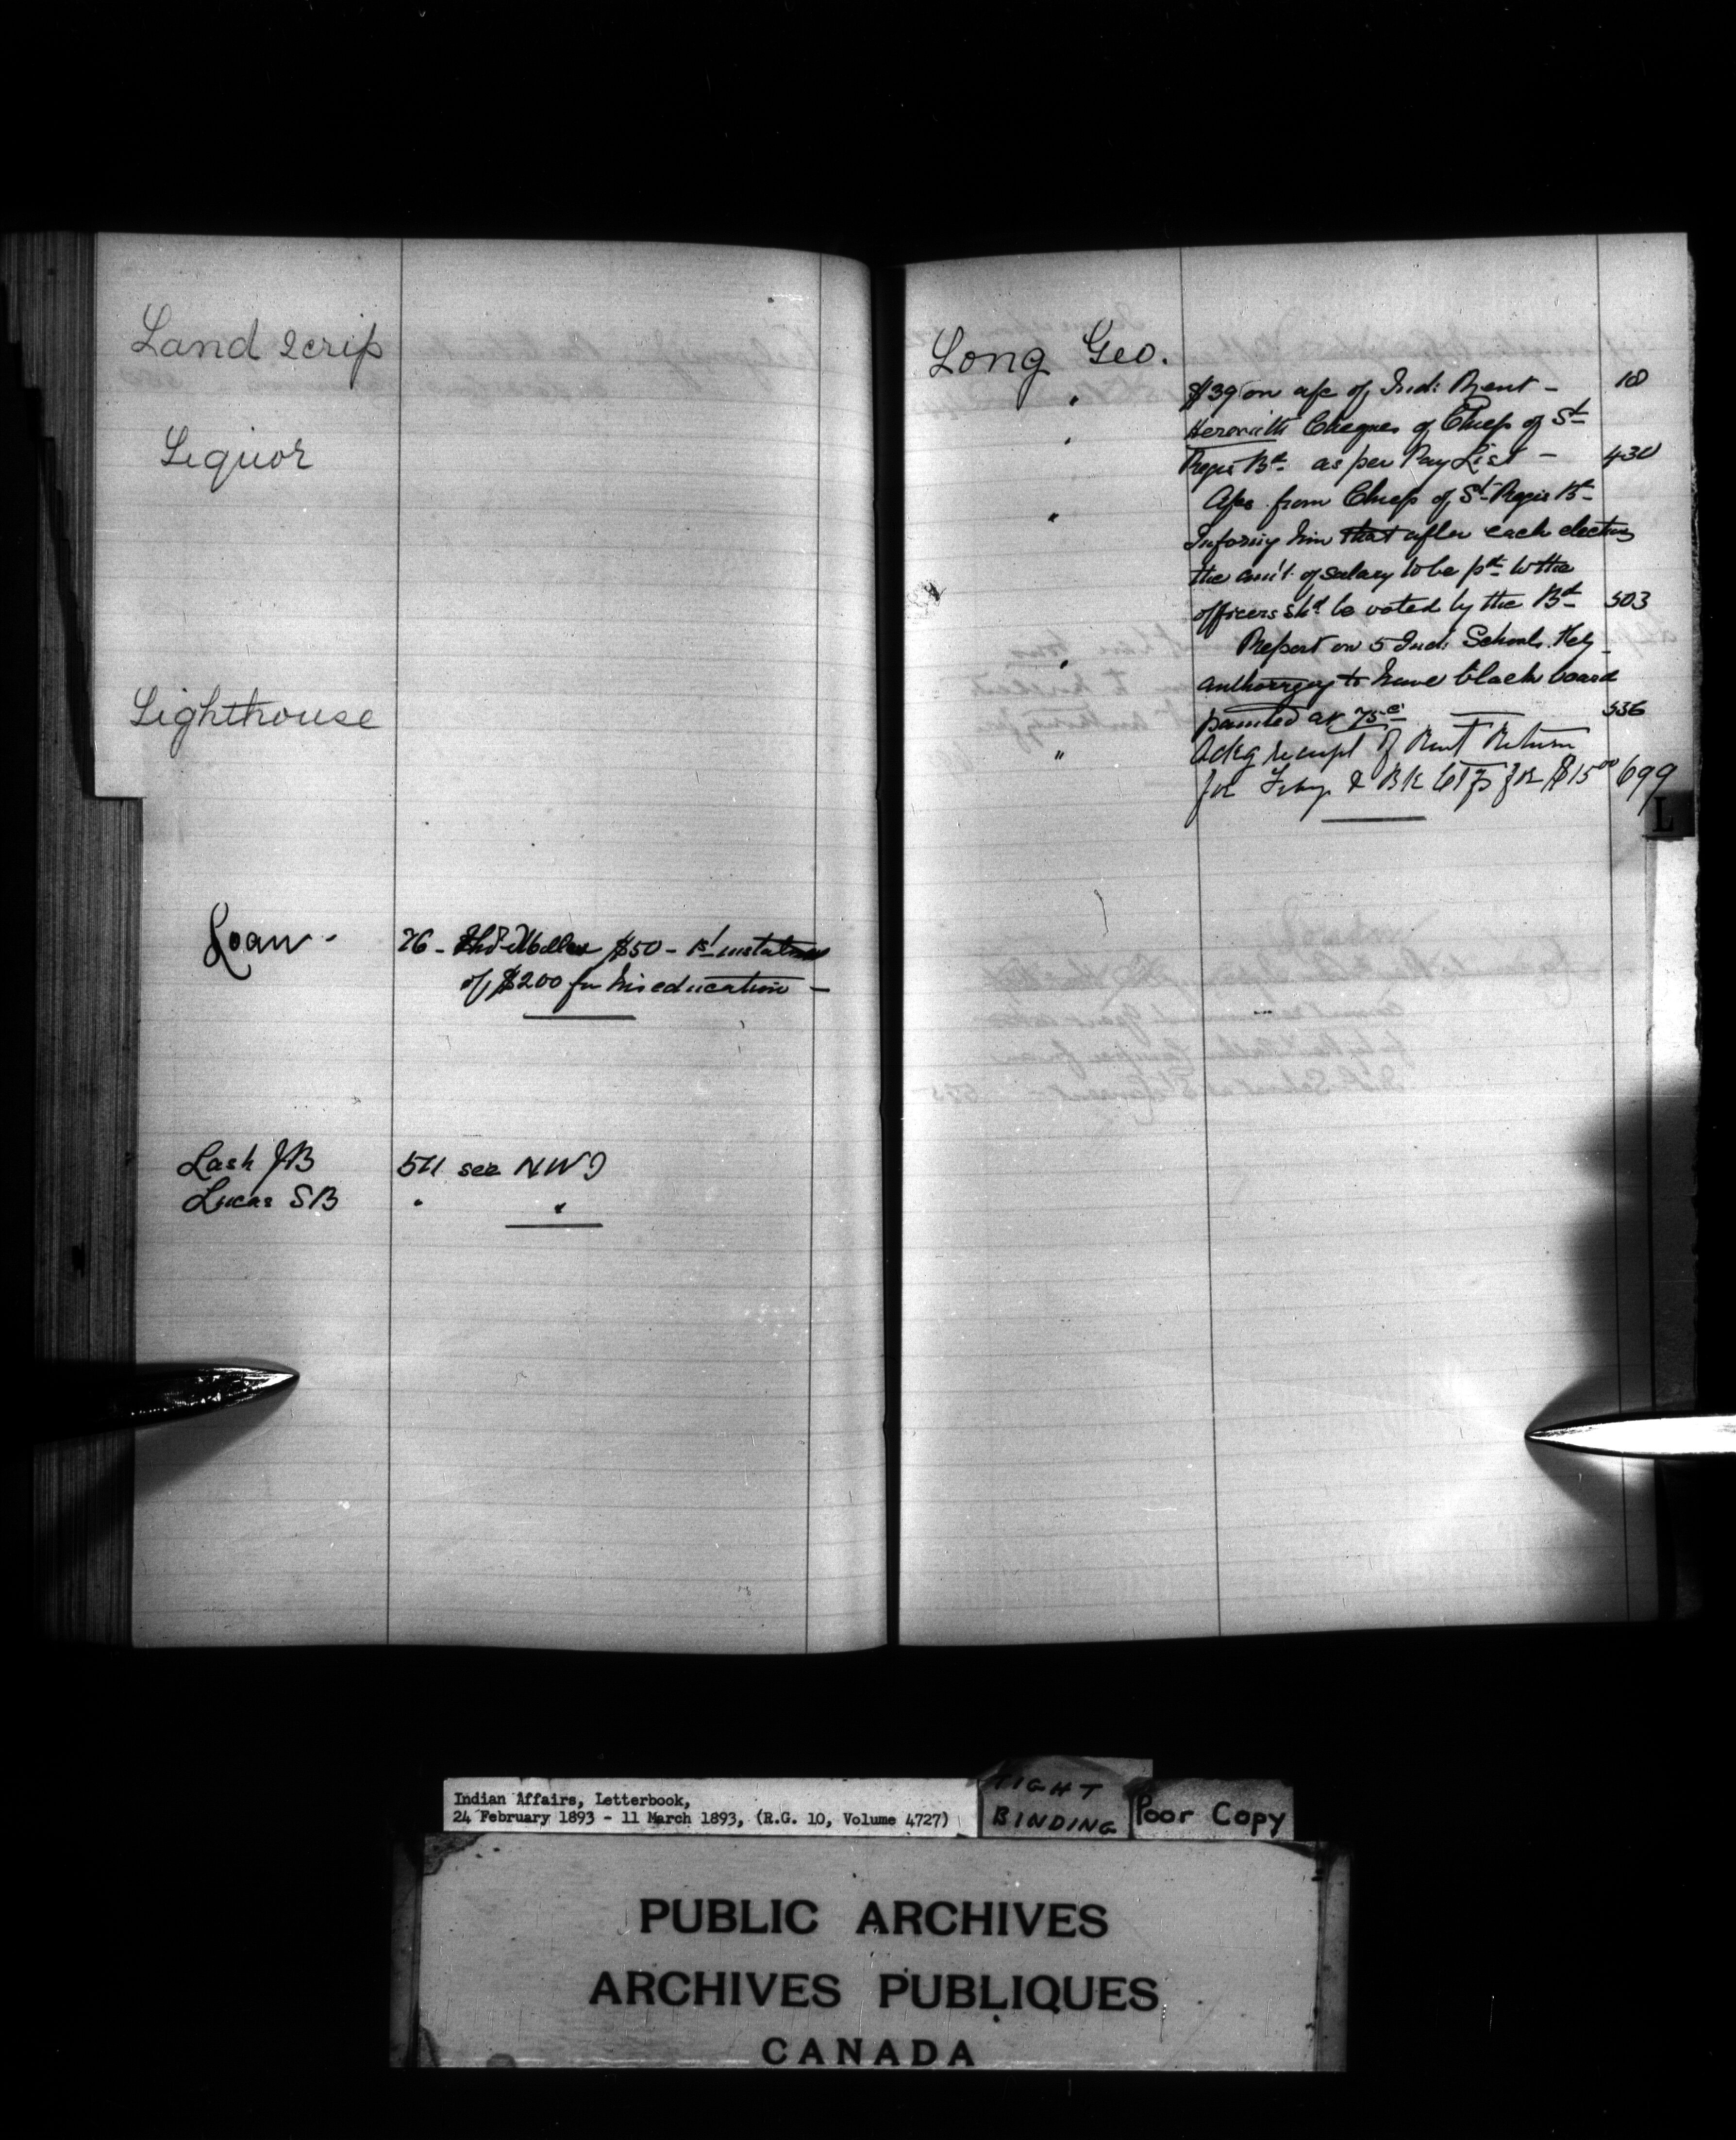 Land Scrip
Liquor
Lighthouse
Loan -
76 - $50 - 1st
of $200 for his education -
Lash JB 511 see NWT
Lucas SB " "
Long Geo.
" $39 on a/c of Ind: Rent - 10
" Herewith Cheques of Chiefs of St
Regis Bd. as per Pay List - 430
" from Chiefs of St Regis Bd
him that after each election
the am't. of salary to be pd to the
officers shd be voted by the Bd 503
" Report on 5 Ind: Schools.
to have black board
painted at 75c 536
" Ackg receipt of Rent Return
for Feby & Bk for $15.00 699
L
Indian Affairs, Letterbook,
24 February 1893 - 11 March 1893, (R.G. 10, Volume 4727)
TIGHT
BINDING
Poor Copy
PUBLIC ARCHIVES
ARCHIVES PUBLIQUES
CANADA